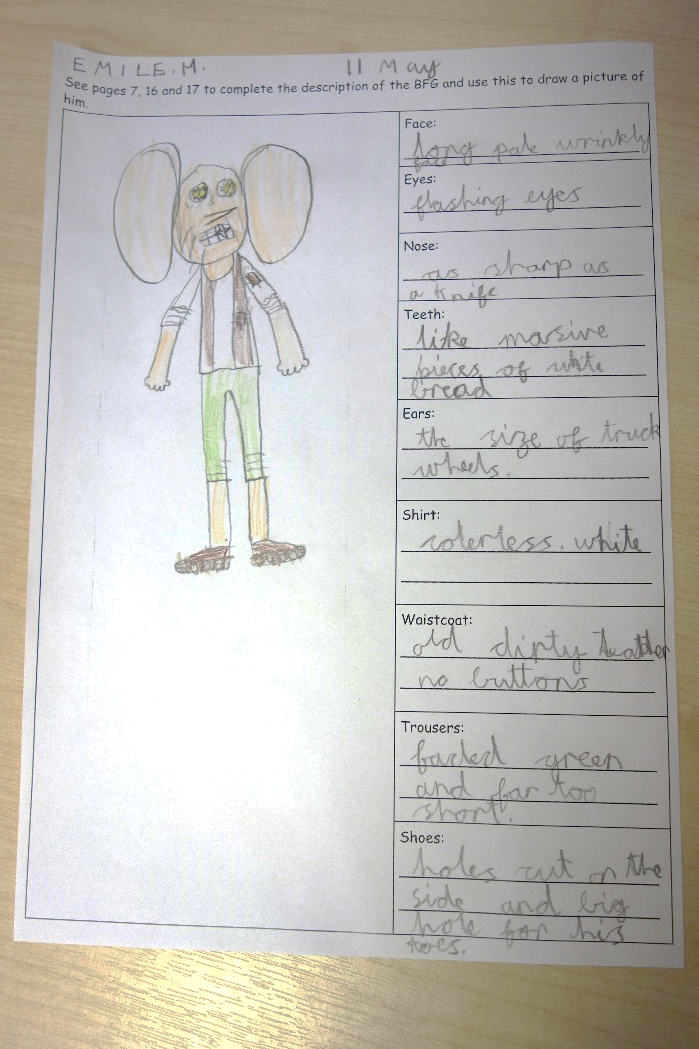 EMILE.M. 11 May
See pages 7, 16 and 17 to complete the description of the BFG and use this to draw a picture of
him.
Face:
long pale wrinkly
face
Eyes:
flashing eyes
Nose:
as sharp as
a knife
Teeth:
like marsive
pieces of white
bread
Ears:
the size of truck
wheels.
Shirt:
colerless. white
Waistcoat:
old dirty leather
no buttons
Trousers:
faded green
and far too
short.
Shoes:
holes cut on the
side and big
hole for his
toes.